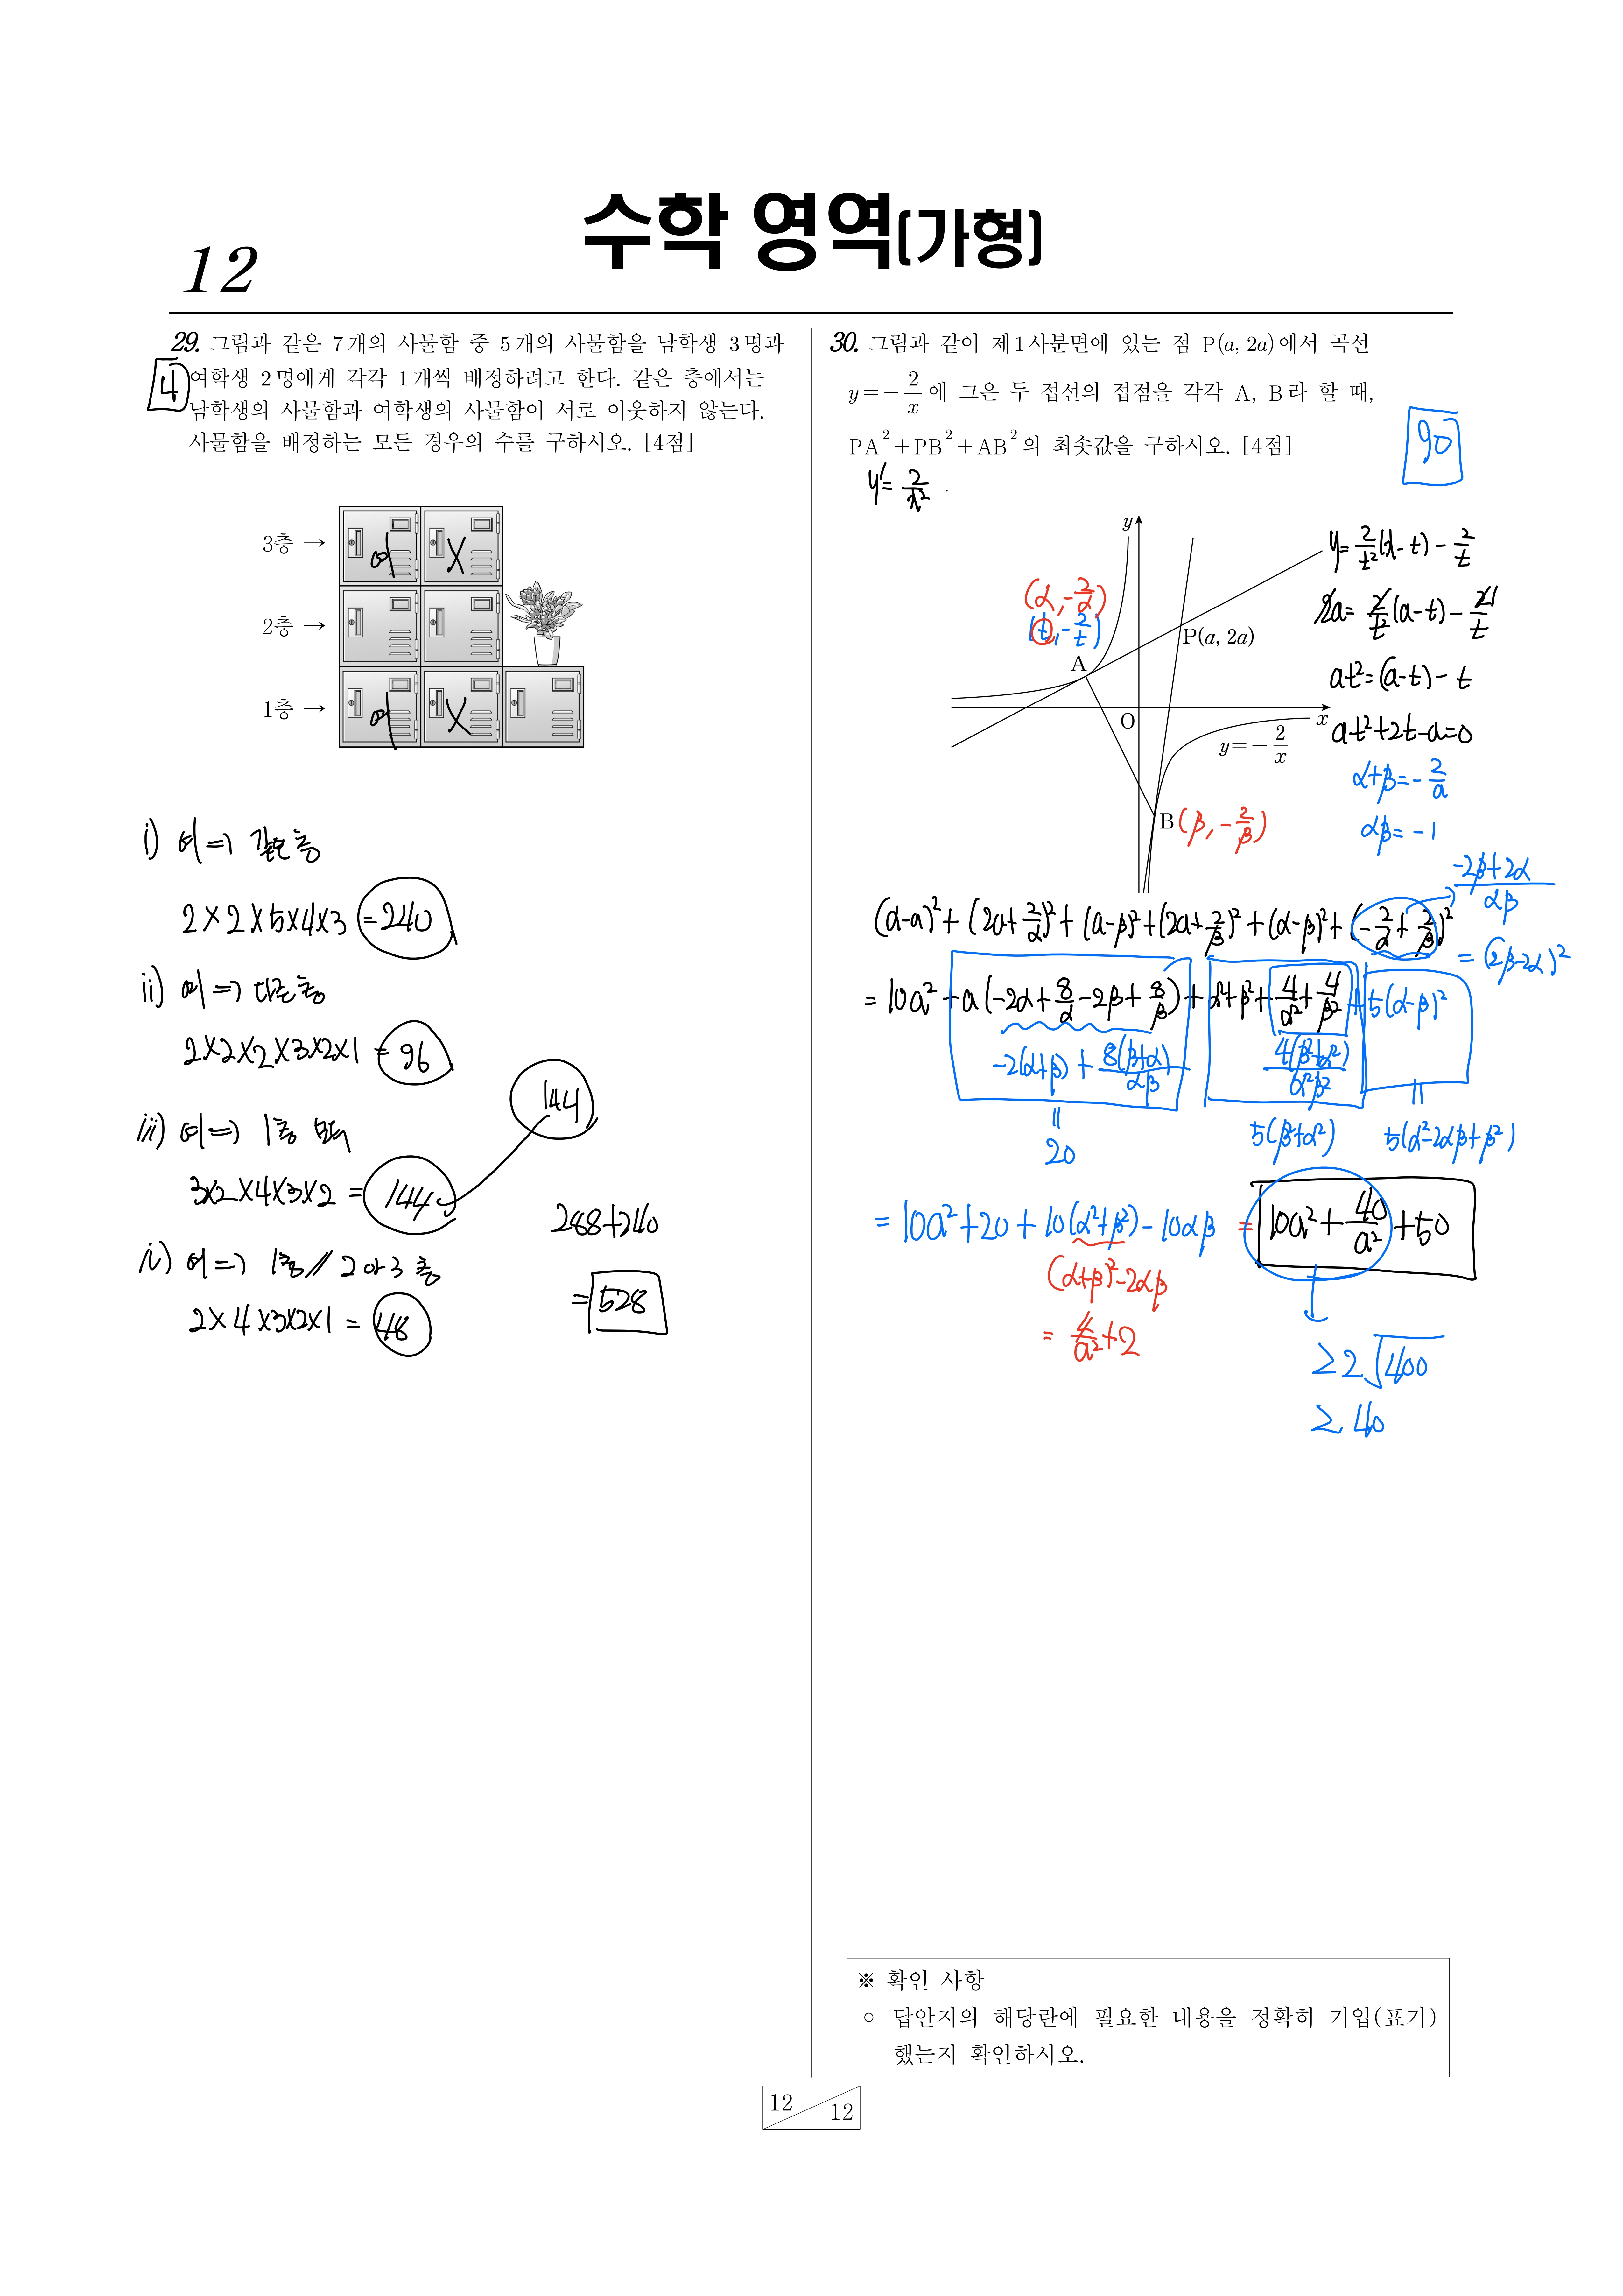 12
수학 영역(가형)
29. 그림과 같은 7개의 사물함 중 5개의 사물함을 남학생 3명과
4
여학생 2명에게 각각 1개씩 배정하려고 한다. 같은 층에서는
남학생의 사물함과 여학생의 사물함이 서로 이웃하지 않는다.
사물함을 배정하는 모든 경우의 수를 구하시오. [4점]
3층 → 여 X
2층 →
1층 → 여 X
i) 여 => 같은 층
2×2×5×4×3 = 240
ii) 여 => 다른 층
2×2×2×3×2×1 = 96
iii) 여 => 1층
3×2×4×3×2 = 144
144
iv) 여 => 1층 // 2 or 3 층
2×4×3×2×1 = 48
288+240
= 528
30. 그림과 같이 제1사분면에 있는 점 P(a, 2a)에서 곡선
y = -2/x 에 그은 두 접선의 접점을 각각 A, B라 할 때,
PA² + PB² + AB² 의 최솟값을 구하시오. [4점]
90
y' = 2/x²
y
(α, -2/α)
(t, -2/t)
A
P(a, 2a)
O
x
y = -2/x
B (β, -2/β)
y = 2/t²(x-t) - 2/t
2a = 2/t²(a-t) - 2/t
at² = (a-t) - t
at²+2t-a=0
α+β = -2/a
αβ = -1
(-2β+2α)/αβ
= (2β-2α)²
(α-a)² + (2a+2/α)² + (a-β)² + (2a+2/β)² + (α-β)² + (-2/α + 2/β)²
= 10a² + a(-2α + 8/α - 2β + 8/β) + α²+β² + 4/α² + 4/β² + 5(α-β)²
-2(α+β) + 8(β+α)/αβ
4(β²+α²)/α²β²
=
20
5(β²+α²)
=
5(α²-2αβ+β²)
= 10a²+20 + 10(α²+β²) - 10αβ = 10a² + 40/a² + 50
(α+β)²-2αβ
= 4/a² + 2
≥ 2√400
≥ 40
※ 확인 사항
○ 답안지의 해당란에 필요한 내용을 정확히 기입(표기)
했는지 확인하시오.
12 / 12